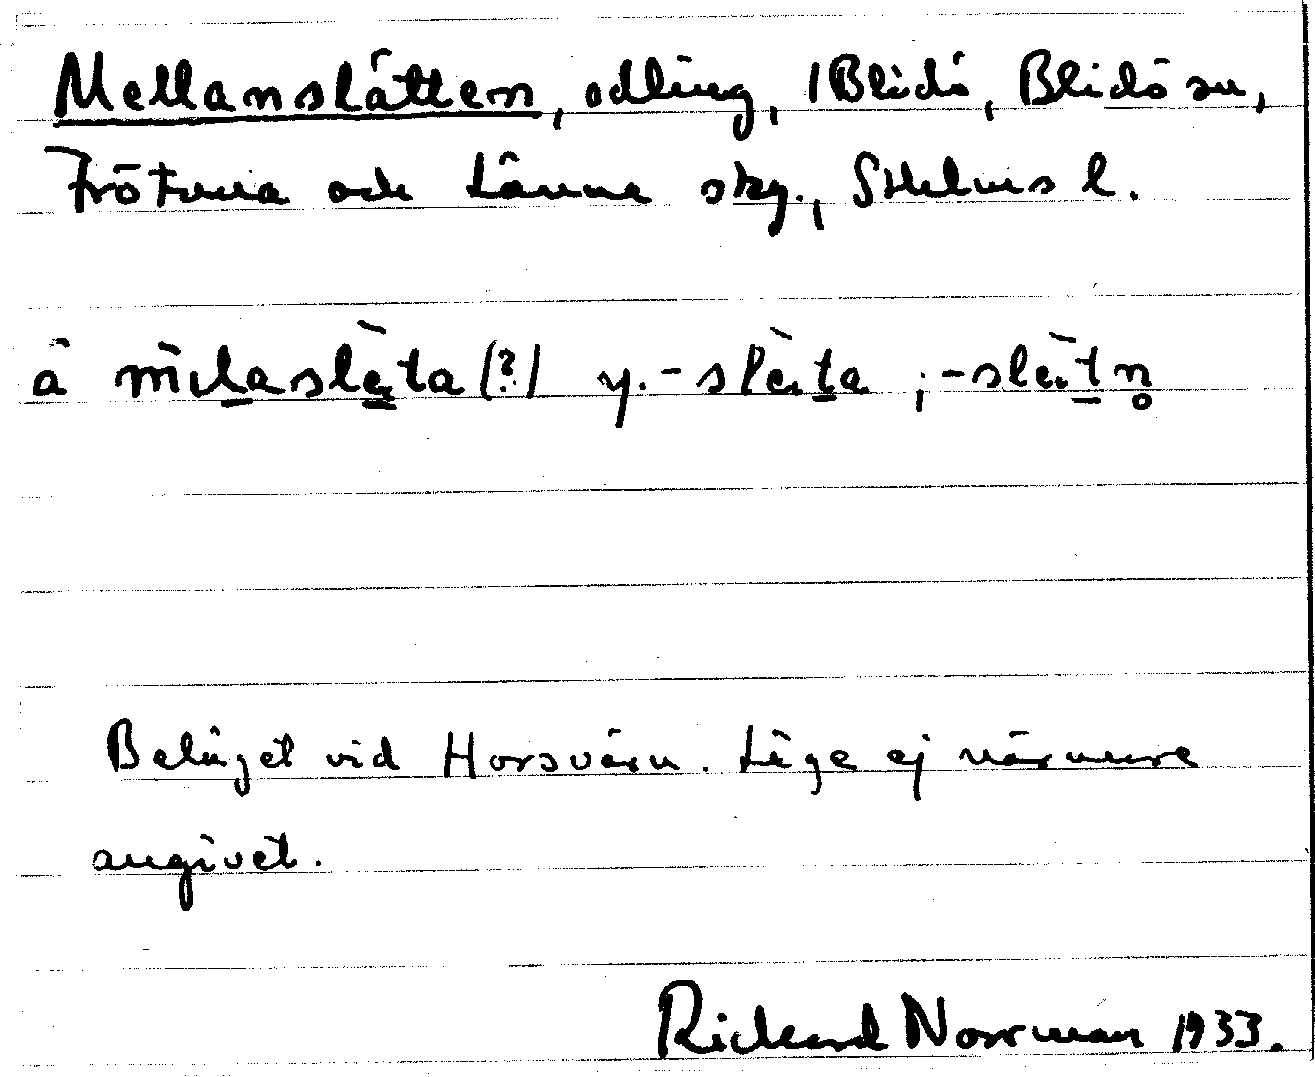 Mellanslätten, odling, 1 Blidö, Blidö sn,
Frötuna och Länna skg., Sthlms l.
å mìlaslèta (?) y. -slèta ; -slètn̥
Beläget vid Horsvärn. Läge ej närmare
angivet.
Rickard Norrman 1933.